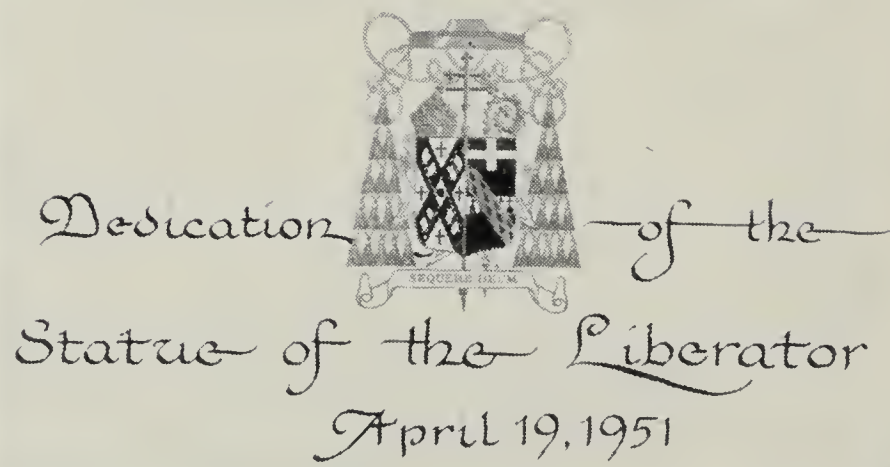 Dedication of the
SEQUERE DEUM
Statue of the Liberator
April 19, 1951